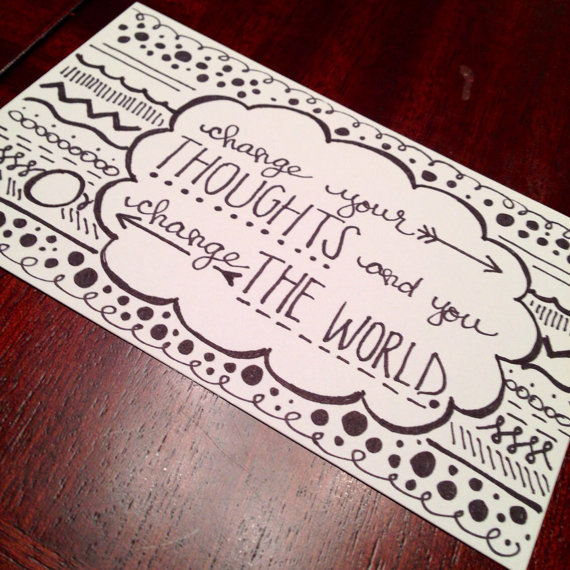 change your
THOUGHTS and you
change THE WORLD.